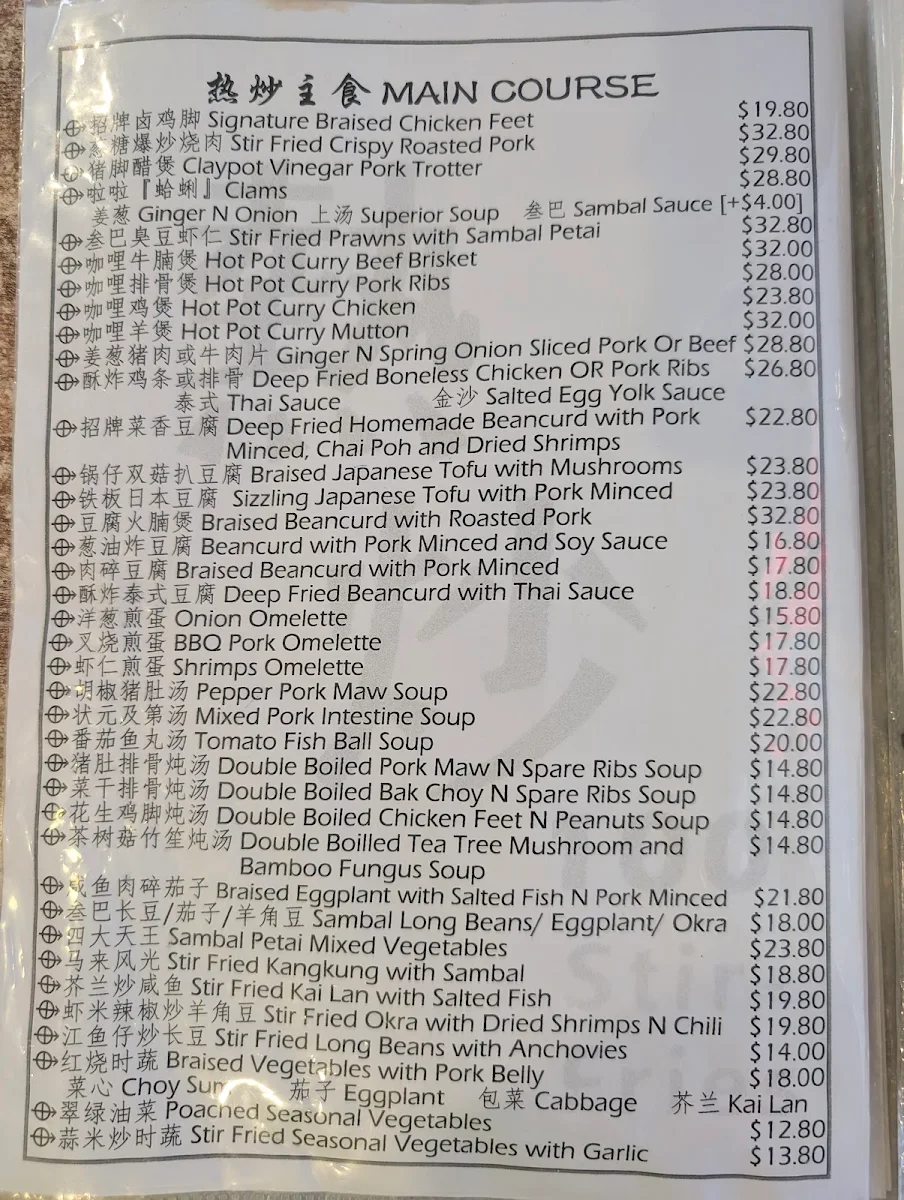 热炒主食 MAIN COURSE
招牌卤鸡脚 Signature Braised Chicken Feet $19.80
糖爆炒烧肉 Stir Fried Crispy Roasted Pork $32.80
猪脚醋煲 Claypot Vinegar Pork Trotter $29.80
啦啦『蛤蜊』Clams $28.80
姜葱 Ginger N Onion 上汤 Superior Soup 叁巴 Sambal Sauce [+$4.00]
叁巴臭豆虾仁 Stir Fried Prawns with Sambal Petai $32.80
咖哩牛腩煲 Hot Pot Curry Beef Brisket $32.00
咖哩排骨煲 Hot Pot Curry Pork Ribs $28.00
咖哩鸡煲 Hot Pot Curry Chicken $23.80
咖哩羊煲 Hot Pot Curry Mutton $32.00
姜葱猪肉或牛肉片 Ginger N Spring Onion Sliced Pork Or Beef $28.80
酥炸鸡条或排骨 Deep Fried Boneless Chicken OR Pork Ribs $26.80
泰式 Thai Sauce 金沙 Salted Egg Yolk Sauce
招牌菜香豆腐 Deep Fried Homemade Beancurd with Pork $22.80
Minced, Chai Poh and Dried Shrimps
锅仔双菇扒豆腐 Braised Japanese Tofu with Mushrooms $23.80
铁板日本豆腐 Sizzling Japanese Tofu with Pork Minced $23.80
豆腐火腩煲 Braised Beancurd with Roasted Pork $32.80
葱油炸豆腐 Beancurd with Pork Minced and Soy Sauce $16.80
肉碎豆腐 Braised Beancurd with Pork Minced $17.80
酥炸泰式豆腐 Deep Fried Beancurd with Thai Sauce $18.80
洋葱煎蛋 Onion Omelette $15.80
叉烧煎蛋 BBQ Pork Omelette $17.80
虾仁煎蛋 Shrimps Omelette $17.80
胡椒猪肚汤 Pepper Pork Maw Soup $22.80
状元及第汤 Mixed Pork Intestine Soup $22.80
番茄鱼丸汤 Tomato Fish Ball Soup $20.00
猪肚排骨炖汤 Double Boiled Pork Maw N Spare Ribs Soup $14.80
菜干排骨炖汤 Double Boiled Bak Choy N Spare Ribs Soup $14.80
花生鸡脚炖汤 Double Boiled Chicken Feet N Peanuts Soup $14.80
茶树菇竹笙炖汤 Double Boilled Tea Tree Mushroom and $14.80
Bamboo Fungus Soup
咸鱼肉碎茄子 Braised Eggplant with Salted Fish N Pork Minced $21.80
叁巴长豆/茄子/羊角豆 Sambal Long Beans/ Eggplant/ Okra $18.00
四大天王 Sambal Petai Mixed Vegetables $23.80
马来风光 Stir Fried Kangkung with Sambal $18.80
芥兰炒咸鱼 Stir Fried Kai Lan with Salted Fish $19.80
虾米辣椒炒羊角豆 Stir Fried Okra with Dried Shrimps N Chili $19.80
江鱼仔炒长豆 Stir Fried Long Beans with Anchovies $14.00
红烧时蔬 Braised Vegetables with Pork Belly $18.00
菜心 Choy Sum 茄子 Eggplant 包菜 Cabbage 芥兰 Kai Lan
翠绿油菜 Poached Seasonal Vegetables $12.80
蒜米炒时蔬 Stir Fried Seasonal Vegetables with Garlic $13.80